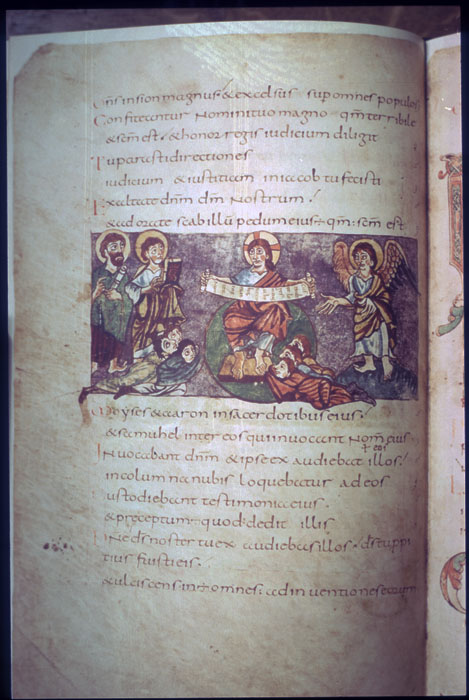 Dn̄s insion magnus & excelsus sup omnes populos
Confiteantur Nomini tuo magno qm̄ terribile
& sc̄m est & honor regis iudicium diligit
Tu parasti directiones
iudicium & iustitiam in iacob tu fecisti
Exaltate dn̄m dm̄ Nostrum
& adorate scabillū pedum eius qm̄ sc̄m est
Moyses & aaron in sacerdotibus eius
& samuhel inter eos qui inuocant Nom̄ eius
Inuocabant dn̄m & ipse exaudiebat illos
in columna nubis loquebatur ad eos
custodiebant testimonia eius
& preceptum quod dedit illis
Dn̄e ds̄ noster tu exaudiebas illos ds̄ tu ppi
tius fuisti eis
& ulciscens in omnes adinuentiones eorum